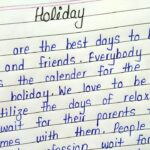 Holiday
are the best days to
and friends. Everybody
s the calender for the
holiday. We love to be
utilize the days of relax
wait for their parents
mes with them. People
wait for